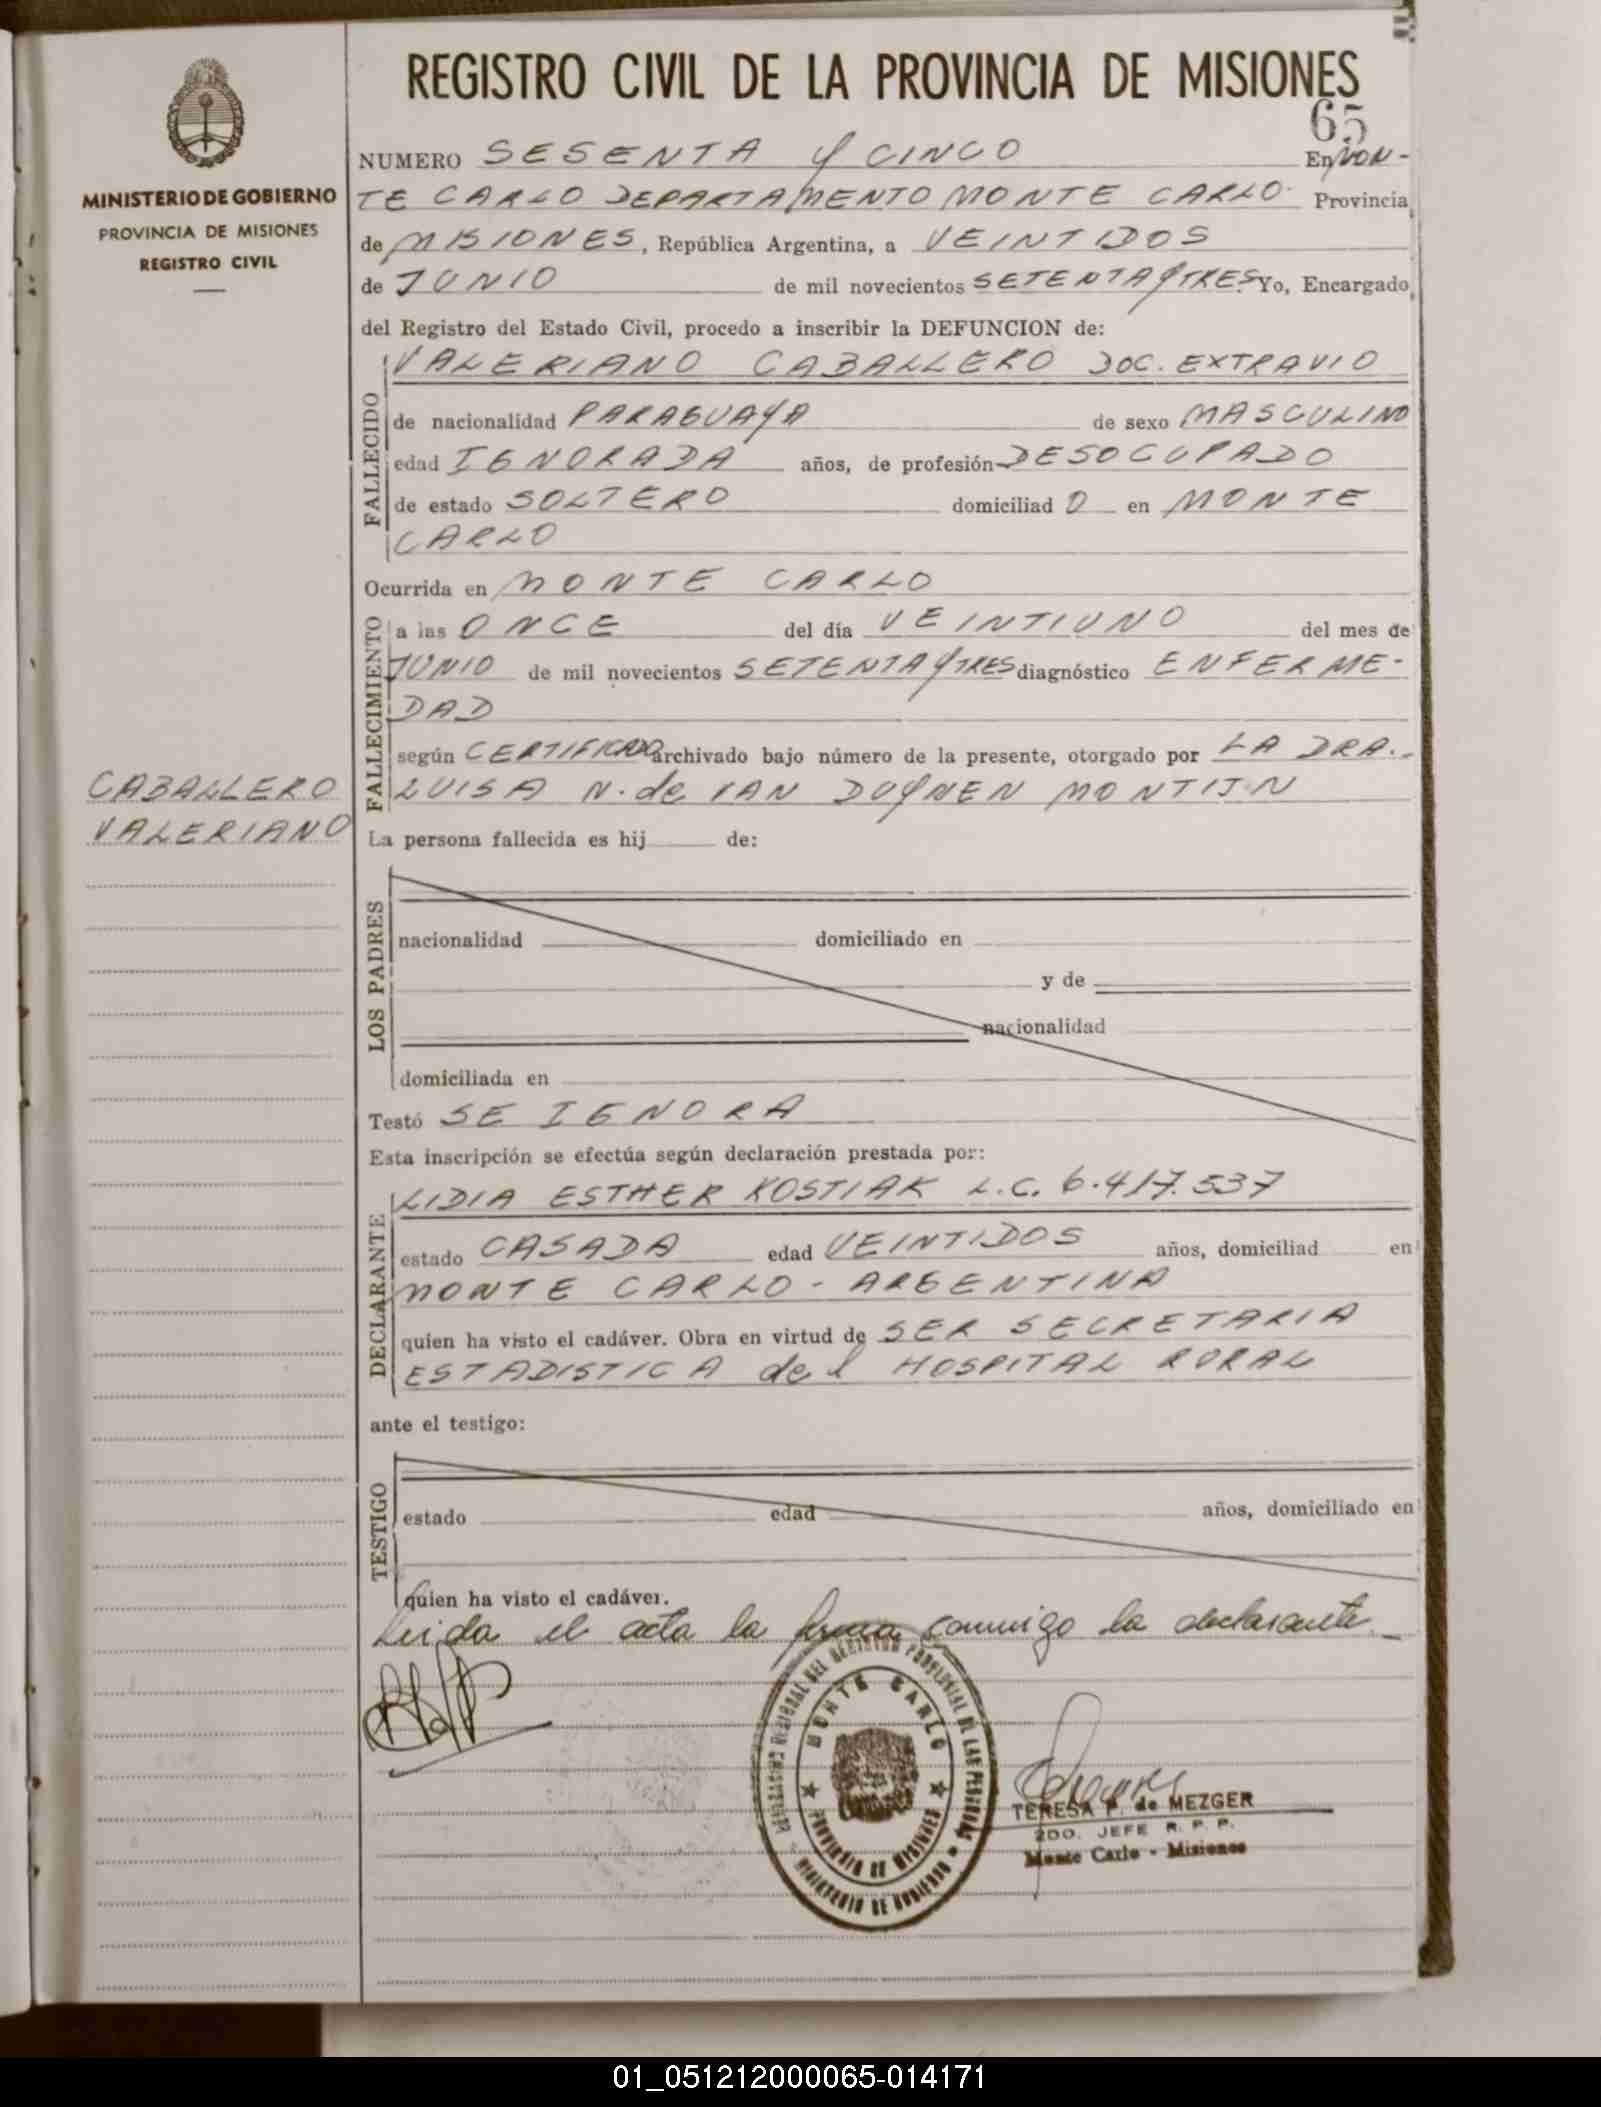 REGISTRO CIVIL DE LA PROVINCIA DE MISIONES
65
MINISTERIO DE GOBIERNO
PROVINCIA DE MISIONES
REGISTRO CIVIL
NUMERO SESENTA Y CINCO En MON-
TE CARLO DEPARTAMENTO MONTE CARLO Provincia
de MISIONES, República Argentina, a VEINTIDOS
de JUNIO de mil novecientos SETENTA Y TRES Yo, Encargado
del Registro del Estado Civil, procedo a inscribir la DEFUNCION de:
FALLECIDO
VALERIANO CABALLERO DOC. EXTRAVIO
de nacionalidad PARAGUAYA de sexo MASCULINO
edad IGNORADA años, de profesión DESOCUPADO
de estado SOLTERO domiciliad O en MONTE
CARLO
Ocurrida en MONTE CARLO
FALLECIMIENTO
a las ONCE del día VEINTIUNO del mes de
JUNIO de mil novecientos SETENTA Y TRES diagnóstico ENFERME-
DAD
según CERTIFICADO archivado bajo número de la presente, otorgado por LA DRA.
LUISA N. de VAN DUYNEN MONTIJN
CABALLERO
VALERIANO
La persona fallecida es hij de:
LOS PADRES
nacionalidad domiciliado en
y de
nacionalidad
domiciliada en
Testó SE IGNORA
Esta inscripción se efectúa según declaración prestada por:
DECLARANTE
LIDIA ESTHER KOSTIAK L.C. 6.417.537
estado CASADA edad VEINTIDOS años, domiciliad en
MONTE CARLO - ARGENTINA
quien ha visto el cadáver. Obra en virtud de SER SECRETARIA
ESTADISTICA del HOSPITAL RURAL
ante el testigo:
TESTIGO
estado edad años, domiciliado en
quien ha visto el cadáver.
Leida el acta la firma conmigo la declarante.
MONTE CARLO
PROVINCIA DE MISIONES
MINISTERIO DE GOBIERNO
TERESA P. de MEZGER
2DO. JEFE R. P. P.
Monte Carlo - Misiones
01_051212000065-014171